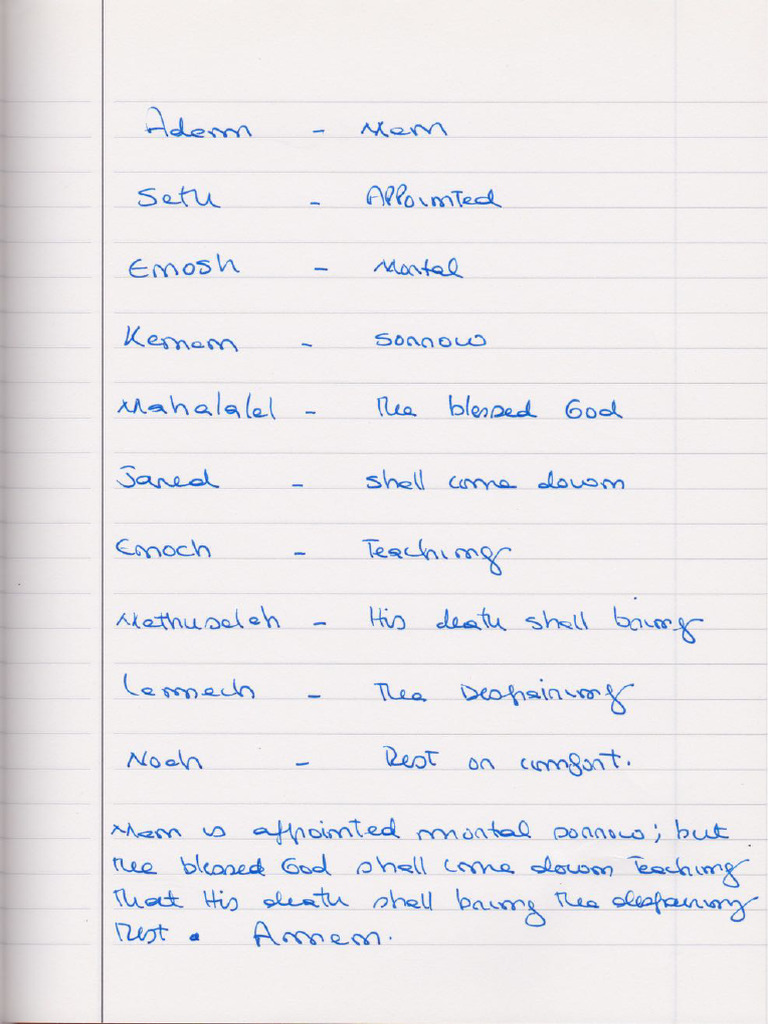 Adam - Man
Seth - Appointed
Enosh - Mortal
Kenan - sorrow
Mahalalel - The blessed God
Jared - shall come down
Enoch - Teaching
Methuselah - His death shall bring
Lamech - The Despairing
Noah - Rest or comfort.
Man is appointed mortal sorrow; but
the blessed God shall come down Teaching
that His death shall bring the despairing
Rest. Amen.